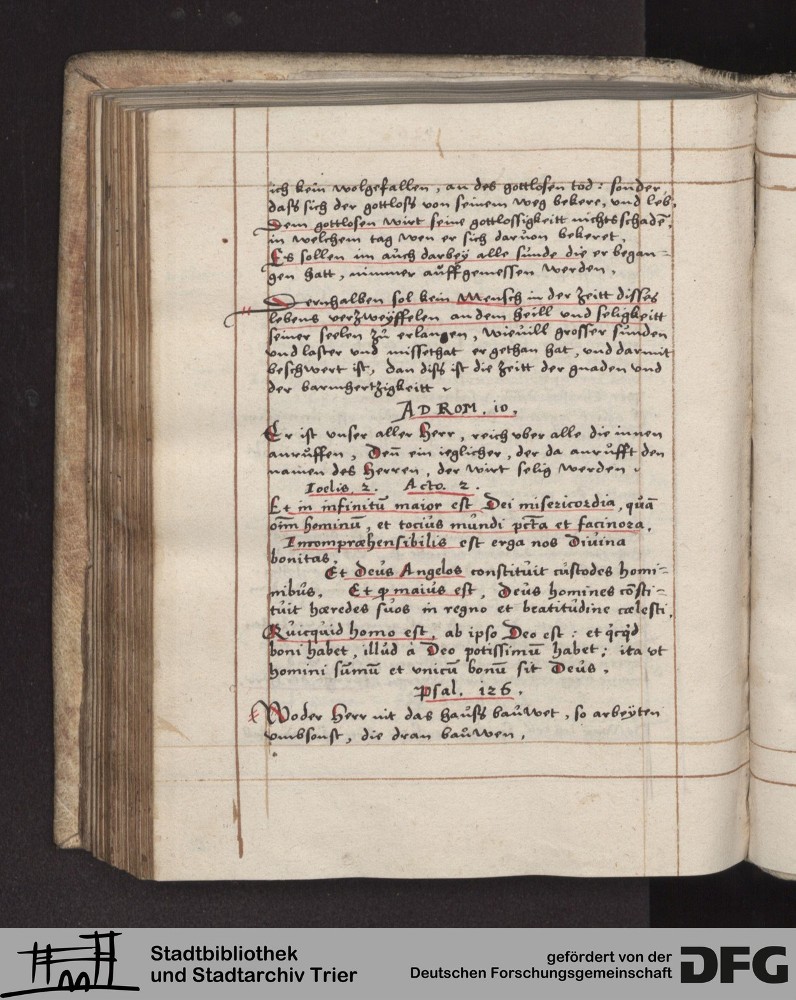 ich kein wolgefallen, an des gottlosen tod: sonder,
dass sich der gottloss von seinem weg bekere, und leb.
Dem gottlosen wirt seine gottlossigkeitt nichts schadē,
in welchem tag wen er sich daruon bekeret.
Es sollen im auch darbey alle sunde die er began=
gen hatt, nimmer auffgemessen werden.
Dernhalben sol kein Mensch in der zeitt disses
lebens verzweyffelen an dem heill und seligkeitt
seiner seelen zů erlangen, wieuill grosser sunden
und laster und missethat er gethan hat, und darmit
beschwert ist, dan diss ist die zeitt der gnaden und
der barmhertzigkeitt.
AD ROM. 10.
Er ist unser aller Herr, reich uber alle die innen
anruffen, Deñ ein ieglicher, der da anrufft den
namen des Herren, der wirt selig werden.
Ioelis. 2. Acto. 2.
Et in infinitū maior est Dei misericordia, quā
oīm hominū, et tocius mundi pctā et facinora.
Incompræhensibilis est erga nos Diuina
bonitas.
Et Deus Angelos constituit custodes homi=
nibus. Et q maius est, Deus homines cōsti=
tuit hæredes suos in regno et beatitudine cælesti.
Quicquid homo est, ab ipso Deo est: et qcqd
boni habet, illud à Deo potissimū habet: ita ut
homini sumū et unicū bonū sit Deus.
Psal. 126.
Wo der Herr nit das hauss bauwet, so arbeyten
umbsonst, die dran bauwen.
Stadtbibliothek
und Stadtarchiv Trier
gefördert von der
Deutschen Forschungsgemeinschaft
DFG